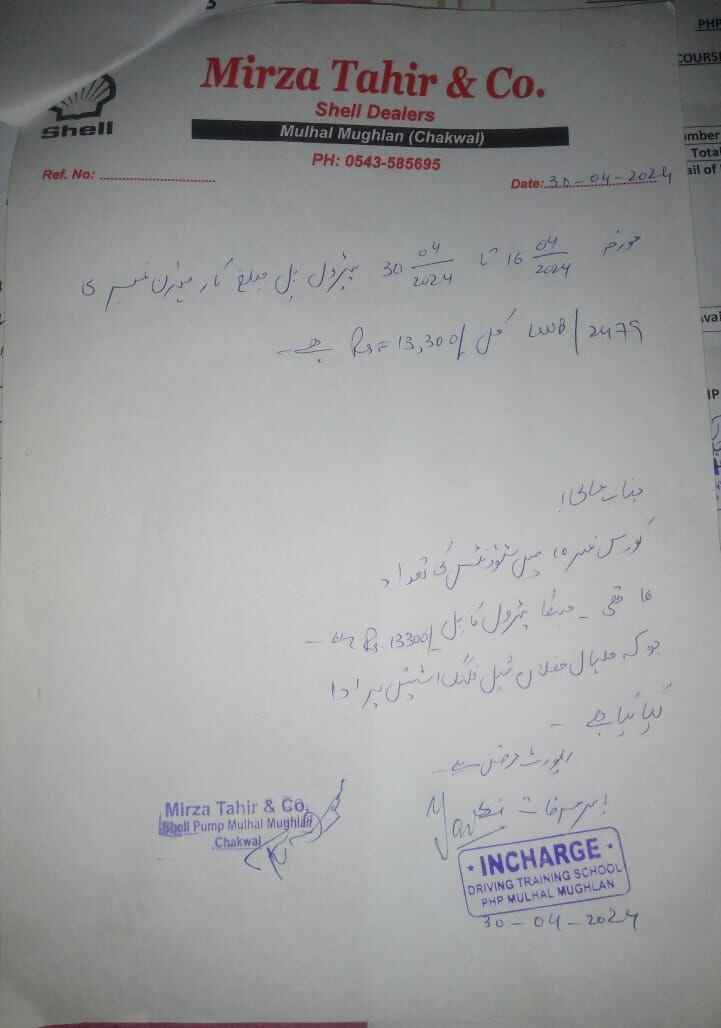 Mirza Tahir & Co.
Shell Dealers
Mulhal Mughlan (Chakwal)
PH: 0543-585695
Shell
Ref. No:
Date: 30-04-2024
مورخہ 16 04/2024 تا 30 04/2024 پیٹرول بل مبلغ کار نمبری
LWB/2479 کل Rs=13,300/ ہے۔
جناب عالی!
کورس نمبر 15 میں سٹوڈنٹس کی تعداد
تھی۔ جسکا پٹرول کا بل Rs 13300/ ہے۔
جو کہ ملہال مغلاں شیل فلنگ اسٹیشن پر ادا
کیا گیا ہے۔
رپورٹ عرض ہے۔
Mirza Tahir & Co.
Shell Pump Mulhal Mughlan
Chakwal
INCHARGE
DRIVING TRAINING SCHOOL
PHP MULHAL MUGHLAN
30-04-2024
PHP
COURSE
Total